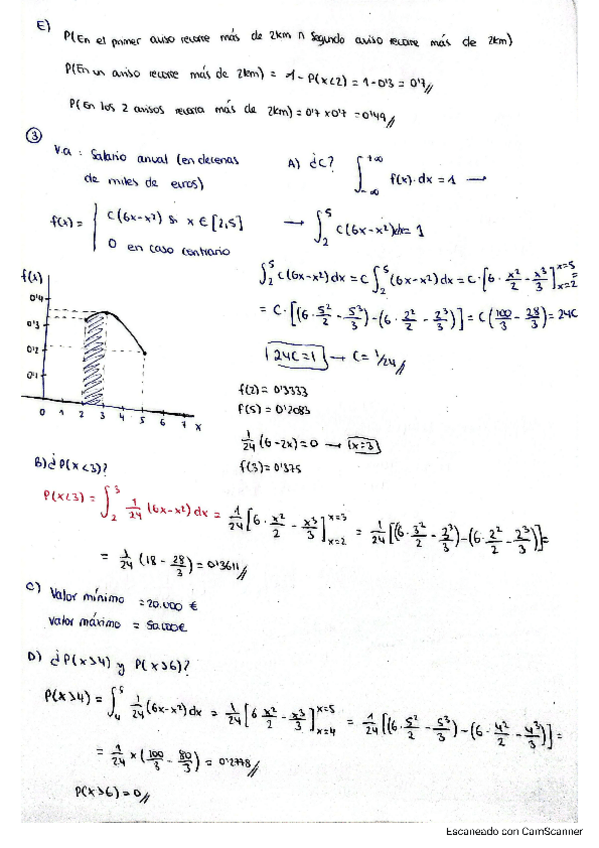 E) P(En el primer aviso recorre más de 2km ∩ Segundo aviso recorre más de 2km)
P(En un aviso recorre más de 2km) = 1 - P(x<2) = 1-0'3 = 0'7//
P(En los 2 avisos recorra más de 2km) = 0'7 x 0'7 = 0'49//
③
V.a : Salario anual (en decenas de miles de euros)
f(x) = { C(6x-x²) si x ∈ [2,5]
0 en caso contrario
A) ¿C? ∫_{-∞}^{+∞} f(x)·dx = 1 →
→ ∫_2^5 C(6x-x²)dx = 1
∫_2^5 C(6x-x²)dx = C ∫_2^5 (6x-x²)dx = C·[6·x²/2 - x³/3]_{x=2}^{x=5} =
= C·[(6·5²/2 - 5³/3)-(6·2²/2 - 2³/3)] = C(100/3 - 28/3) = 24C
24C=1 → C = 1/24//
f(x)
0'4
0'3
0'2
0'1
0 1 2 3 4 5 6 7 x
f(2) = 0'3333
f(5) = 0'2083
1/24 (6-2x)=0 → x=3
f(3) = 0'375
B) ¿P(x<3)?
P(x<3) = ∫_2^3 1/24 (6x-x²)dx = 1/24 [6·x²/2 - x³/3]_{x=2}^{x=3} = 1/24 [(6·3²/2 - 3³/3)-(6·2²/2 - 2³/3)] =
= 1/24 (18 - 28/3) = 0'3611//
C) Valor mínimo = 20.000 €
Valor máximo = 50.000€
D) ¿P(x>4) y P(x>6)?
P(x>4) = ∫_4^5 1/24 (6x-x²)dx = 1/24 [6 x²/2 - x³/3]_{x=4}^{x=5} = 1/24 [(6·5²/2 - 5³/3)-(6·4²/2 - 4³/3)] =
= 1/24 × (100/3 - 80/3) = 0'2778//
P(x>6) = 0//
Escaneado con CamScanner